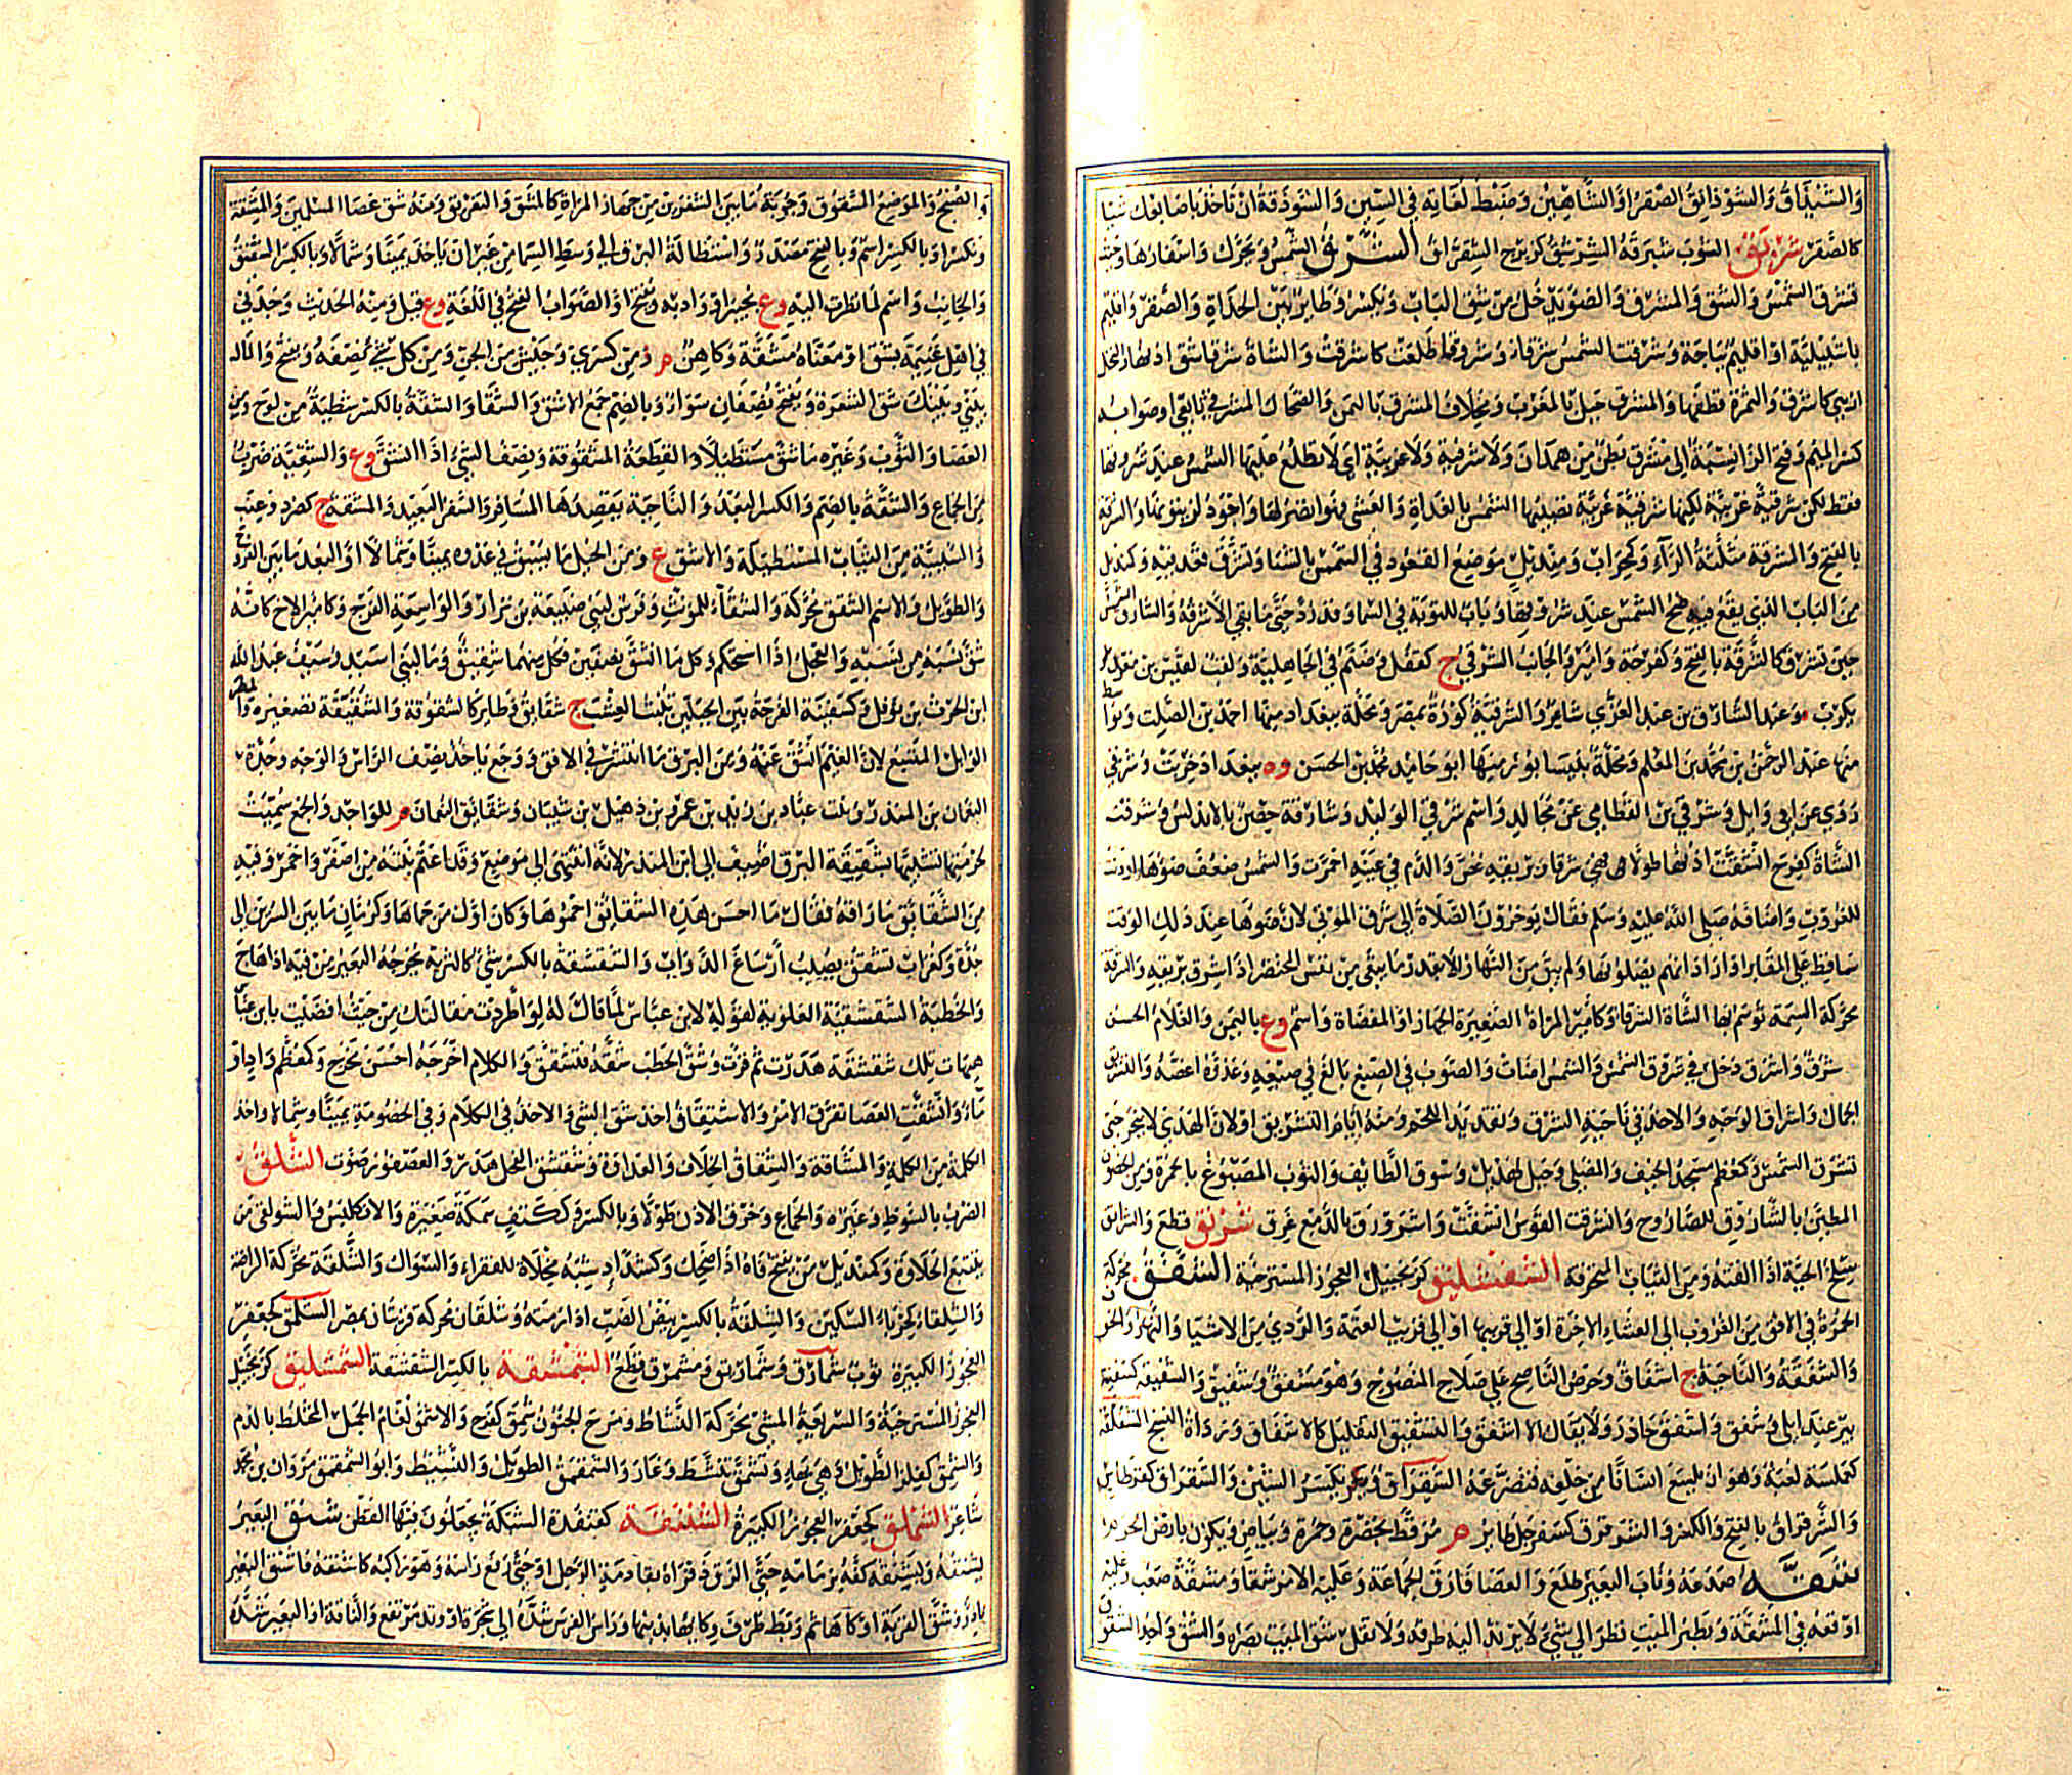 والشيذاق والشوذانق الصقر او الشاهين وضبط لغاته في السين والشوذقة ان تاخذ باصابعك شيا
كالصقر شبرق الثوب شبرقة الشرشق كزبرج الشقراق الشرق الشمس ويحرك واسفارها وحيث
تشرق الشمس والشق والمشرق والضو يدخل من شق الباب ويكسر وطاير بين الحداة والصقر واقليم
باشبيلية او اقليم بباجة وشرقت الشمس شرقا وشروقا طلعت كاشرقت والشاة شرقا شق اذنها والنخل
ازهي كاشرق والثمرة قطفها والمشرق جبل بالمغرب ومخلاف المشرق باليمن والضحاك المشرقي تابعي او صوابه
كسر الميم وفتح الرا نسبة الى مشرق بطن من همدان ولا شرقية ولا غربية اي لا تطلع عليها الشمس عند شروقها
فقط لكن شرقية غربية لكنها شرقية غربية تصيبها الشمس بالغداة والعشي فهو انضر لها واجود لزيتونها والشرقة
بالفتح والمشرقة مثلثة الرآء وكمحراب ومنديل موضع القعود في الشمس بالشتا وتشرق قعد فيه وكمنديل
من الباب الذي يقع فيه ضح الشمس عند شروقها وباب للتوبة في السما وقد رد حتى ما بقي الا شرقه والشارق الشمس
حين تشرق كالشرقة بالفتح وكفرحة وامير والجانب الشرقي ج كقفل وصنم في الجاهلية ولقب لقيس بن معدي
يكرب وعبد الشارق بن عبد العزي شاعر والشرقية كورة بمصر ومحلة ببغداد منها احمد بن الصلت وبواسط
منها عبد الرحمن بن محمد بن المعلم ومحلة بنيسابور منها ابو حامد محمد بن الحسن وه ببغداد خربت وشرقي
روي عن ابي وايل وشرقي بن القطامي عن مجالد واسم شرقي الوليد وشارقة حصن بالاندلس وشرقت
الشاة كفرح انشقت اذنها طولا فهي شرقا وبريقه غص والدم في عينه احمرت والشمس ضعف ضوها او دنت
للغروب واضافه صلى الله عليه وسلم فقال يوخرون الصلاة الى شرق الموتى لان ضوها عند ذلك الوقت
ساقط على المقابر او اراد انهم يصلونها ولم يبق من النهار الا بقدر ما يبقى من نفس المحتضر اذا شرق بريقه والشرقة
محركة السمة توسم بها الشاة الشرقا وكامير المراة الصغيرة الجهاز او المفضاة واسم وع باليمن والغلام الحسن
شرق واشرق دخل في شروق الشمس والشمس اضات والصوب في الصبغ بالغ في صبغه وعدوه اغصه والتشريق
الجمال واشراق الوجه والاخذ في ناحية الشرق وتقديد اللحم ومنه ايام التشريق او لان الهدي لا ينحر حتى
تشرق الشمس وكمعظم مسجد الخيف والمصلى وجبل لهذيل وسوق الطايف والثوب المصبوغ بالحمرة ومن الحصون
المطين بالشاروق للصاروج وانشرقت القوس انشقت واشرورق بالدمع غرق شرنق قطع والشرانق
سلخ الحية اذا القته ومن الثياب المتخرقة الشفشليق كزنجبيل العجوز المسترخية الشفق محركة
الحمرة في الافق من الغروب الى العشاء الاخرة او الى قريبها او الى قريب العتمة والردي من الاشيا والنهار والخوف
والشفقة والناحية ج اشفاق وحرص الناصح على صلاح المنصوح وهو مشفق وشفيق والشفيقة كسفينة
بير عند ابلى وشفق واشفق حاذر ولا يقال الا اشفق والتشفيق التقليل كالاشفاق ورداة النسج الشفلقة
كعملسة لعبة وهو ان يلسع انسانا من خلفه فيصرعه الشقراق ويكسر الشين والشقراق كقرطاس
والشرقراق بالفتح والكسر والشرقرق كسفرجل طاير م مرقط بخضرة وحمرة وبياض ويكون بارض الحرم
شقه صدعه وناب البعير طلع والعصا فارق الجماعة وعليه الامر شقا ومشقة صعب وعليه
اوقعه في المشقة وبصر الميت نظر الى شيء لا يرتد اليه طرفه ولا تقل شق الميت بصره والشق واحد الشقوق
والصبح والموضع المشقوق وجوبة ما بين الشفرين من جهاز المراة كالمشق والتفريق ومنه شق عصا المسلمين والمشقة
ويكسر او بالكسر اسم وبالفتح مصدر واستطالة البرق الى وسط السما من غير ان ياخذ يمينا وشمالا وبالكسر الشقيق
والجانب واسم لما نظرت اليه وع بخيبر او واد به ويفتح او الصواب الفتح في اللغة وع قيل ومنه الحديث وجدني
في اهل غنيمة بشق او معناه مشقة وكاهن م زمن كسرى وجنس من الجن ومن كل شيء نصفه ويفتح والمال
بيني وبينك شق الشعرة ويفتح نصفان سواء وبالضم جمع الاشق والشقا والشقة بالكسر شظية من لوح ومن
العصا والثوب وغيره ما شق مستطيلا والقطعة المشقوقة ونصف الشيء اذا انشق وع والشقية ضرب
من الجماع والشقة بالضم والكسر البعد والناحية يقصدها المسافر والسفر البعيد والمشقة ج كصرد وعنب
والسبيبة من الثياب المستطيلة والاشق ع ومن الخيل ما يشتق في عدوه يمينا وشمالا او البعيد ما بين الفروج
والطويل والاسم الشقق محركة والشقاء للمونث وفرس لبني ضبيعة بن نزار والواسعة الفرج وكامير الاخ كانه
شق نسبه من نسبه والعجل اذا استحكم وكل ما انشق نصفين فكل منهما شقيق وما لبني اسيد وسيف عبد الله
ابن الحرث بن نوفل وكسفينة الفرجة بين الجبلين تنبت العشب ج شقايق وطاير كالشقوقة والشقيقة تصغيره والمطر
الوابل المتسع لان الغيم انشق عنه ومن البرق ما انتشر في الافق ووجع ياخذ نصف الراس والوجه وجدة
النعمان بن المنذر وبنت عباد بن زيد بن عمرو بن ذهل بن شيبان وشقائق النعمان م للواحد والجمع سميت
لحمرتها تشبيها بشقيقة البرق اضيف الى ابن المنذر لانه انتهى الى موضع وقد اعتم نبته من اصفر واحمر وفيه
من الشقائق ما راقه فقال ما احسن هذه الشقائق احموها وكان اول من حماها وكرمان ما بين السرين الى
جدة وكغراب تشقق يصيب ارساغ الدواب والشقشقة بالكسر شيء كالرية يخرجه البعير من فيه اذا هاج
والخطبة الشقشقية العلوية لقوله لابن عباس لما قال له لو اطردت مقالتك من حيث افضيت يا بن عباس
هيهات تلك شقشقة هدرت ثم قرت وشق الحطب شقه فتشقق والكلام اخرجه احسن مخرج وكمعظم واد او
ماء وانشقت العصا تفرق الامر والاشتقاق اخذ شق الشيء والاخذ في الكلام وفي الخصومة يمينا وشمالا واخذ
الكلمة من الكلمة والمشاقة والشقاق الخلاف والعداوة وشقشق الفحل هدر والعصفور صوت الشلق
الضرب بالسوط وغيره والجماع وخرق الاذن طولا وبالكسر وككتف سمكة صغيرة والانكليس والشولقي من
يتتبع الحلاوة وكمنديل من يفتح فاه اذا ضحك وكشداد شبه مخلاة للفقراء والسواك والشلقة محركة الراضة
والشلقاء كحرباء السكين والشلقة بالكسر بيض الضب اذا رمته وشلقان محركة قريتان بمصر الشملق كجعفر
العجوز الكبيرة ثوب شمارق وشماريق ومشمرق قطع الشمشقة بالكسر الشقشقة الشمشليق كزنجبيل
العجوز المسترخية والسريعة المشي محركة النشاط ومرح الجنون شمق كفرح والاشمق لغام الجمل المختلط بالدم
والشمق كفلز الطويل وهي بهاء وتشمق تنشط وغار والشمقمق الطويل والنشيط وابو الشمقمق مروان بن محمد
شاعر الشملق كجعفر العجوز الكبيرة الشنتقة كقنفذة الشبكة يجعلون فيها القطن شنق البعير
يشنقه ويشنقه كفه بزمامه حتى الزق ذفراه بقادمة الرحل او حتى رفع راسه وهو راكبه كاشنقه فاشنق البعير
نادر وشنق القربة اوكاها ثم ربط طرف وكايها بيديها وراس الفرس شده الى شجرة او وتد مرتفع والناقة او البعير شده